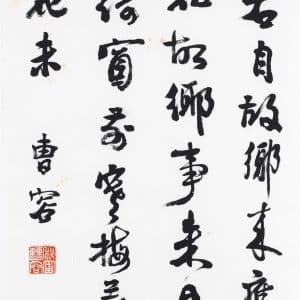 君自故鄉來應
知故鄉事來日
綺窗前寒梅著
花未
曹容